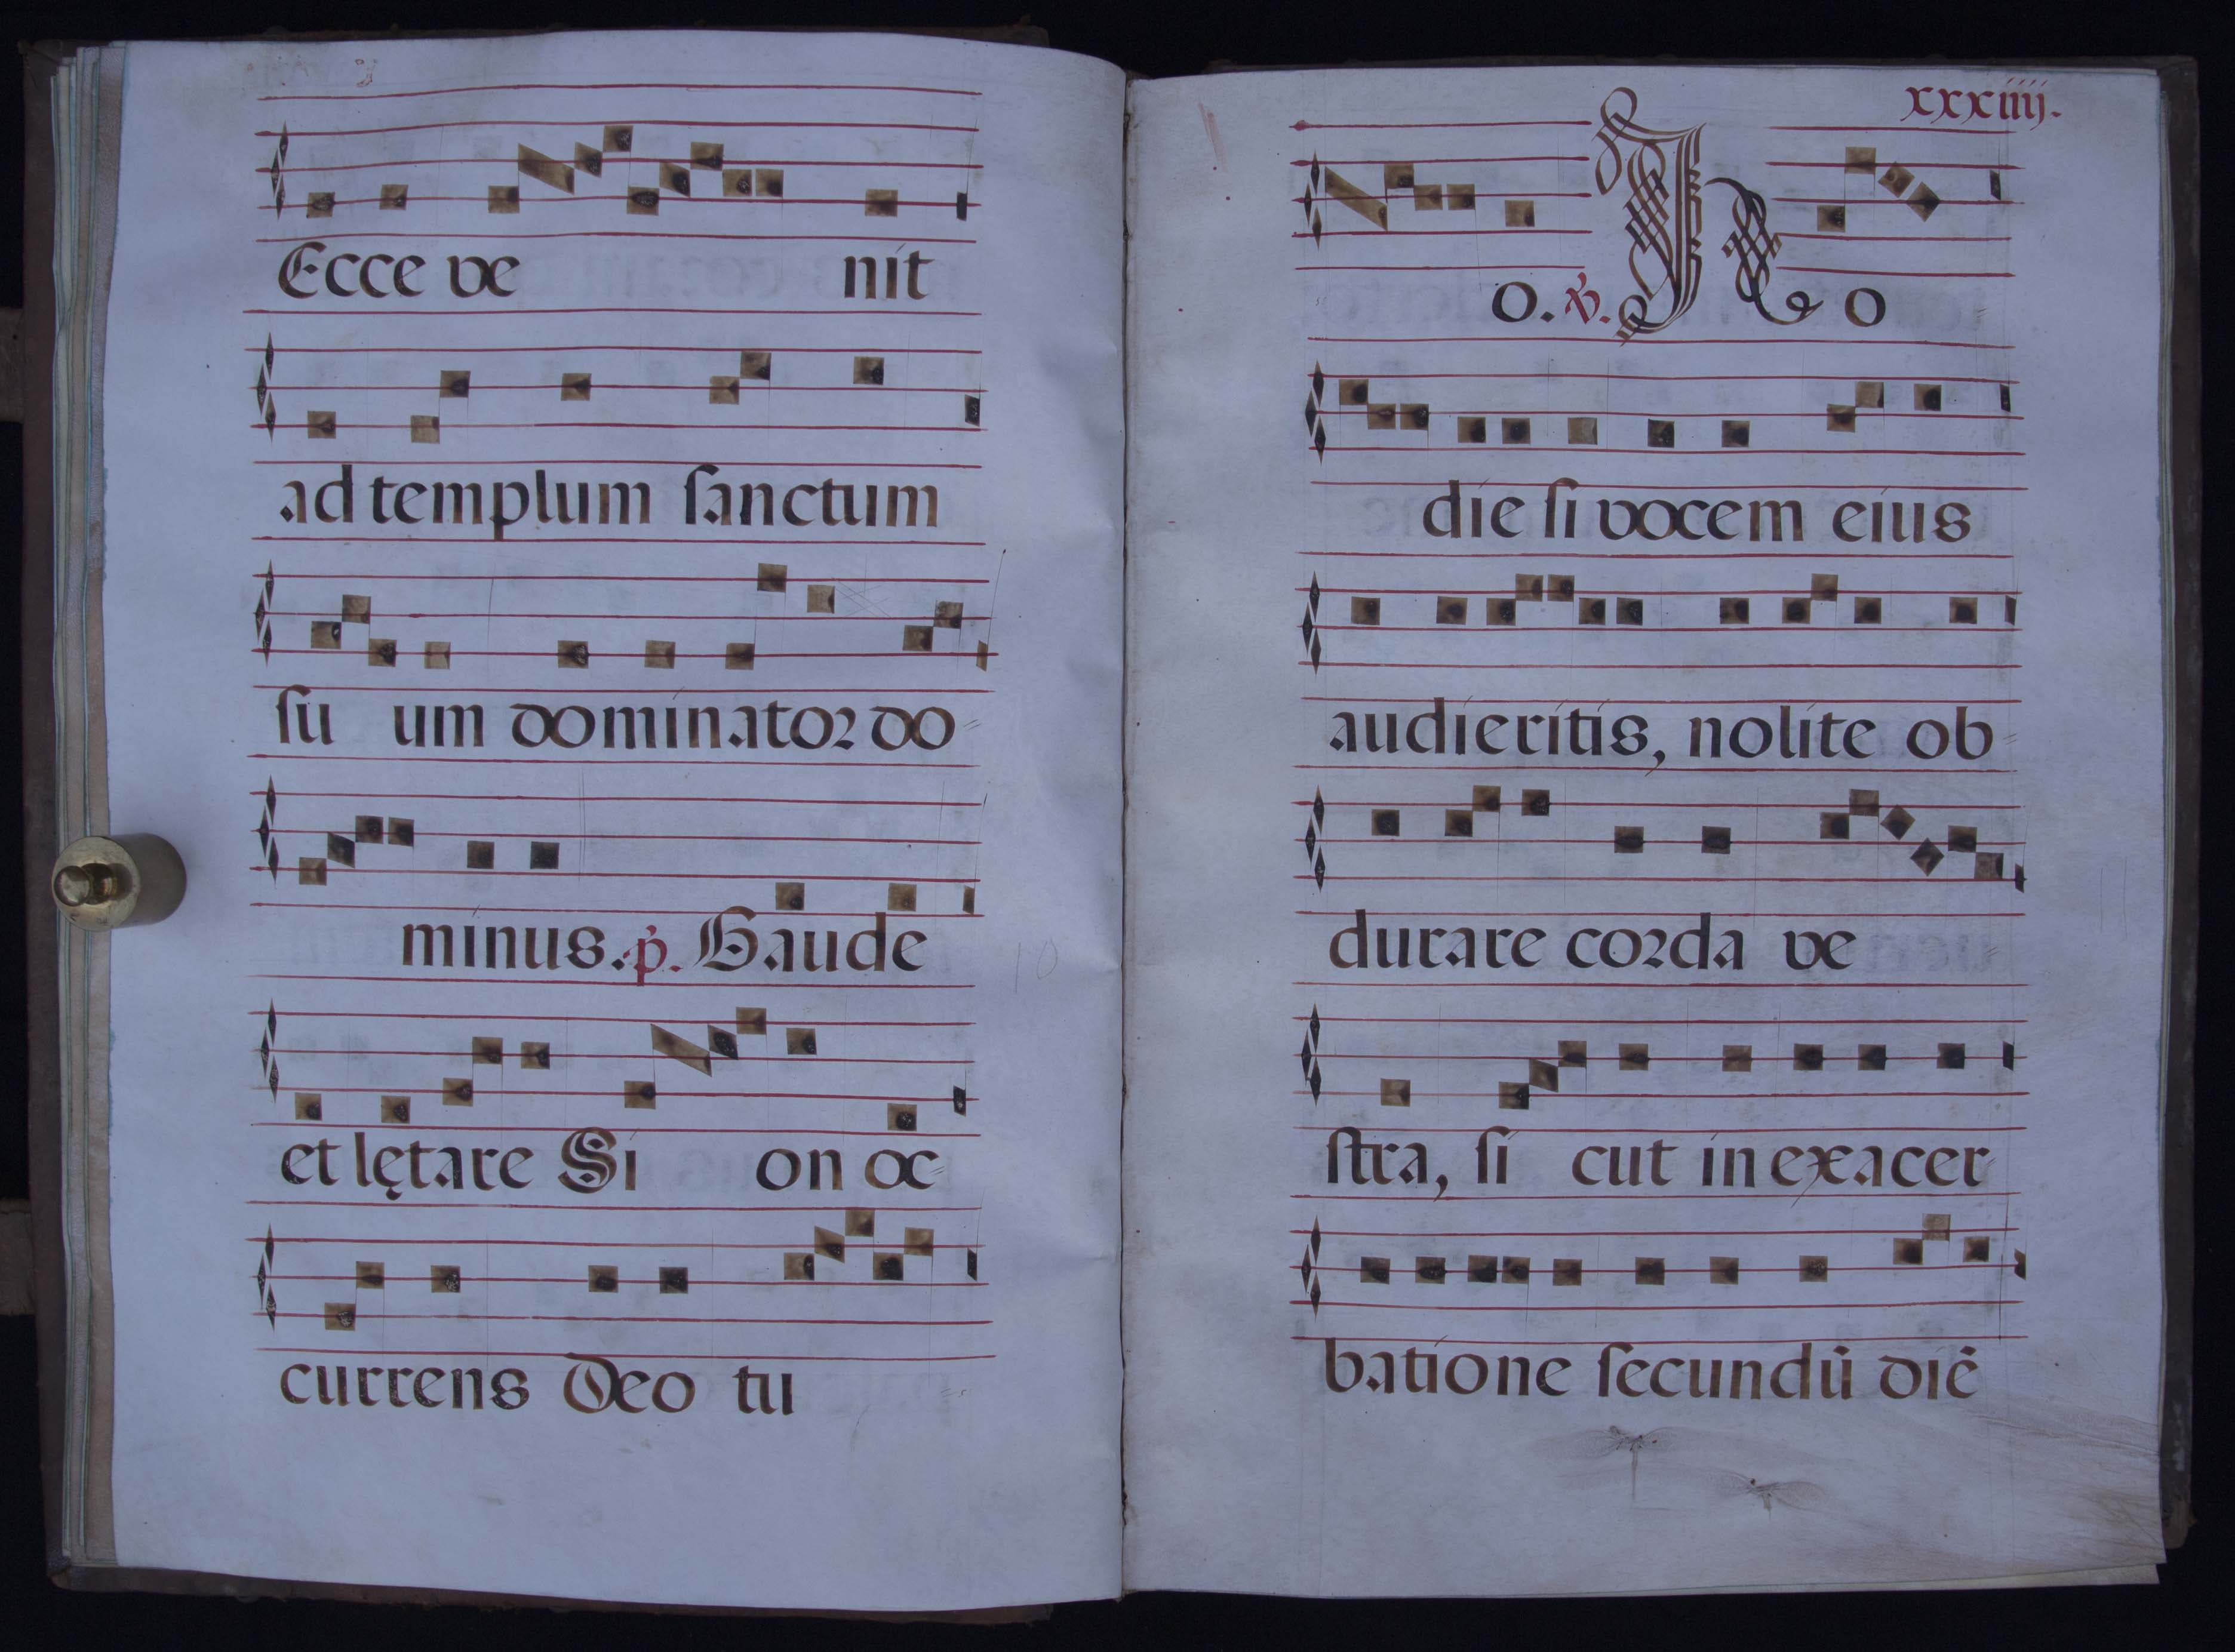 Ecce ve nit
ad templum ſanctum
ſu um dominator do=
minus. p̃. Gaude
et lętare Si on oc=
currens Deo tu =
xxxiiij.
o. ꝟ. H o
die ſi vocem eius
audieritis, nolite ob=
durare corda ve
ſtra, ſi cut in exacer=
batione ſecundū diē